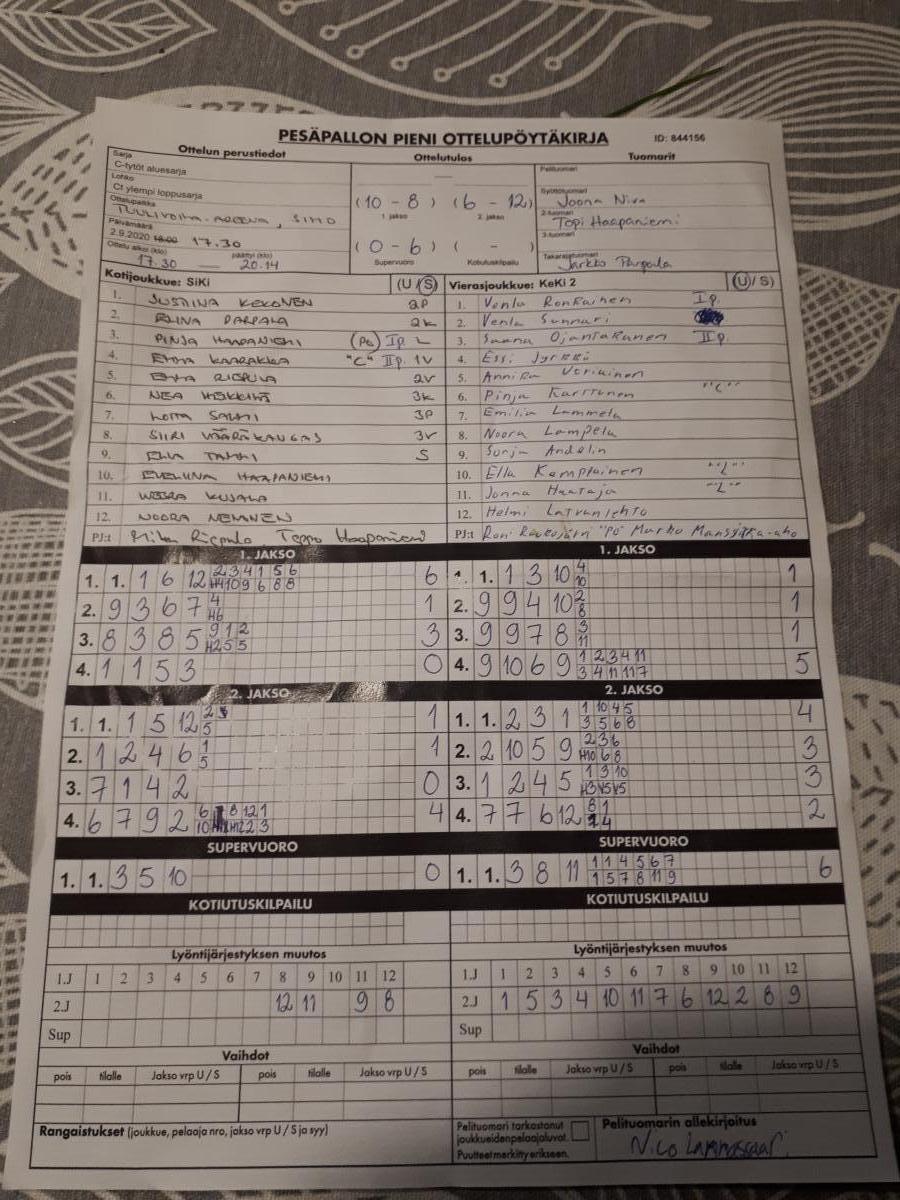 PESÄPALLON PIENI OTTELUPÖYTÄKIRJA ID: 844156
Ottelun perustiedot Ottelutulos Tuomarit
Sarja
C-tytöt aluesarja
Lohko
Ct ylempi loppusarja
Ottelupaikka
TUULIVOIMA-AREENA, SIMO
Päivämäärä
2.9.2020 18:00 17.30
Ottelu alkoi (klo) päättyi (klo)
17.30 — 20.14
(10 - 8) (6 - 12)
1. jakso 2. jakso
(0 - 6) ( - )
Supervuoro Kotiutuskilpailu
Pelituomari
Syöttötuomari
Joona Niva
2-tuomari
Topi Haapaniemi
3-tuomari
Takarajatuomari
Jarkko Parpala
Kotijoukkue: SiKi (U / S)
1. JUSTIINA KEKONEN 2P
2. ELINA PARPALA 2K
3. PINJA HAAPANIEMI (Po) Ip. L
4. EMMA KAARAKKA "C" IIp. 1V
5. EMMA RIEPULA 2V
6. NEA HEIKKILÄ 3K
7. LOTTA SALMI 3P
8. SIIRI VÄÄRÄKANGAS 3V
9. ELLA TAMMI S
10. EVELIINA HAAPANIEMI
11. WEERA KUJALA
12. NOORA NEVANEN
PJ:t Mika Riepula Teppo Haapaniemi
Vierasjoukkue: KeKi 2 (U / S)
1. Venla Ronkainen Ip.
2. Venla Sunnari
3. Saana Ojantakanen IIp.
4. Essi Jyrkkä
5. Annika Voriainen
6. Pinja Karttunen "C"
7. Emilia Lammela
8. Noora Lampela
9. Sonja Andelin
10. Ella Kemppainen "L"
11. Jonna Haataja "L"
12. Helmi Latvanlehto
PJ:t "PO" Marko
1. JAKSO
1. 1. 1 6 12 2 3 4 1 5 6 6
H4 10 9 6 8 8
2. 9 3 6 7 4 1
H6
3. 8 3 8 5 9 1 2 3
H2 5 5
4. 1 1 5 3 0
1. JAKSO
1. 1. 1 3 10 4 1
10
2. 9 9 4 10 2 1
8
3. 9 9 7 8 3 1
11
4. 9 10 6 9 1 2 3 4 11 5
3 4 11 11 7
2. JAKSO
1. 1. 1 5 12 2 1
5
2. 1 2 4 6 1 1
5
3. 7 1 4 2 0
4. 6 7 9 2 6 8 12 1 4
10 H12 2 3
2. JAKSO
1. 1. 2 3 1 1 10 4 5 4
3 5 6 8
2. 2 10 5 9 2 3 6 3
H10 6 8
3. 1 2 4 5 1 3 10 3
H3 V5 V5
4. 7 7 6 12 8 1 2
2 4
SUPERVUORO
1. 1. 3 5 10 0
SUPERVUORO
1. 1. 3 8 11 1 1 4 5 6 7 6
1 5 7 8 11 9
KOTIUTUSKILPAILU
KOTIUTUSKILPAILU
Lyöntijärjestyksen muutos
1.J 1 2 3 4 5 6 7 8 9 10 11 12
2.J 12 11 9 8
Sup
Lyöntijärjestyksen muutos
1.J 1 2 3 4 5 6 7 8 9 10 11 12
2.J 1 5 3 4 10 11 7 6 12 2 8 9
Sup
Vaihdot
pois tilalle Jakso vrp U / S pois tilalle Jakso vrp U / S
Vaihdot
pois tilalle Jakso vrp U / S pois tilalle Jakso vrp U / S
Rangaistukset (joukkue, pelaaja nro, jakso vrp U / S ja syy)
Pelituomari tarkastanut
joukkueidenpelaajaluvat.
Puutteet merkitty erikseen.
Pelituomarin allekirjoitus
Nico